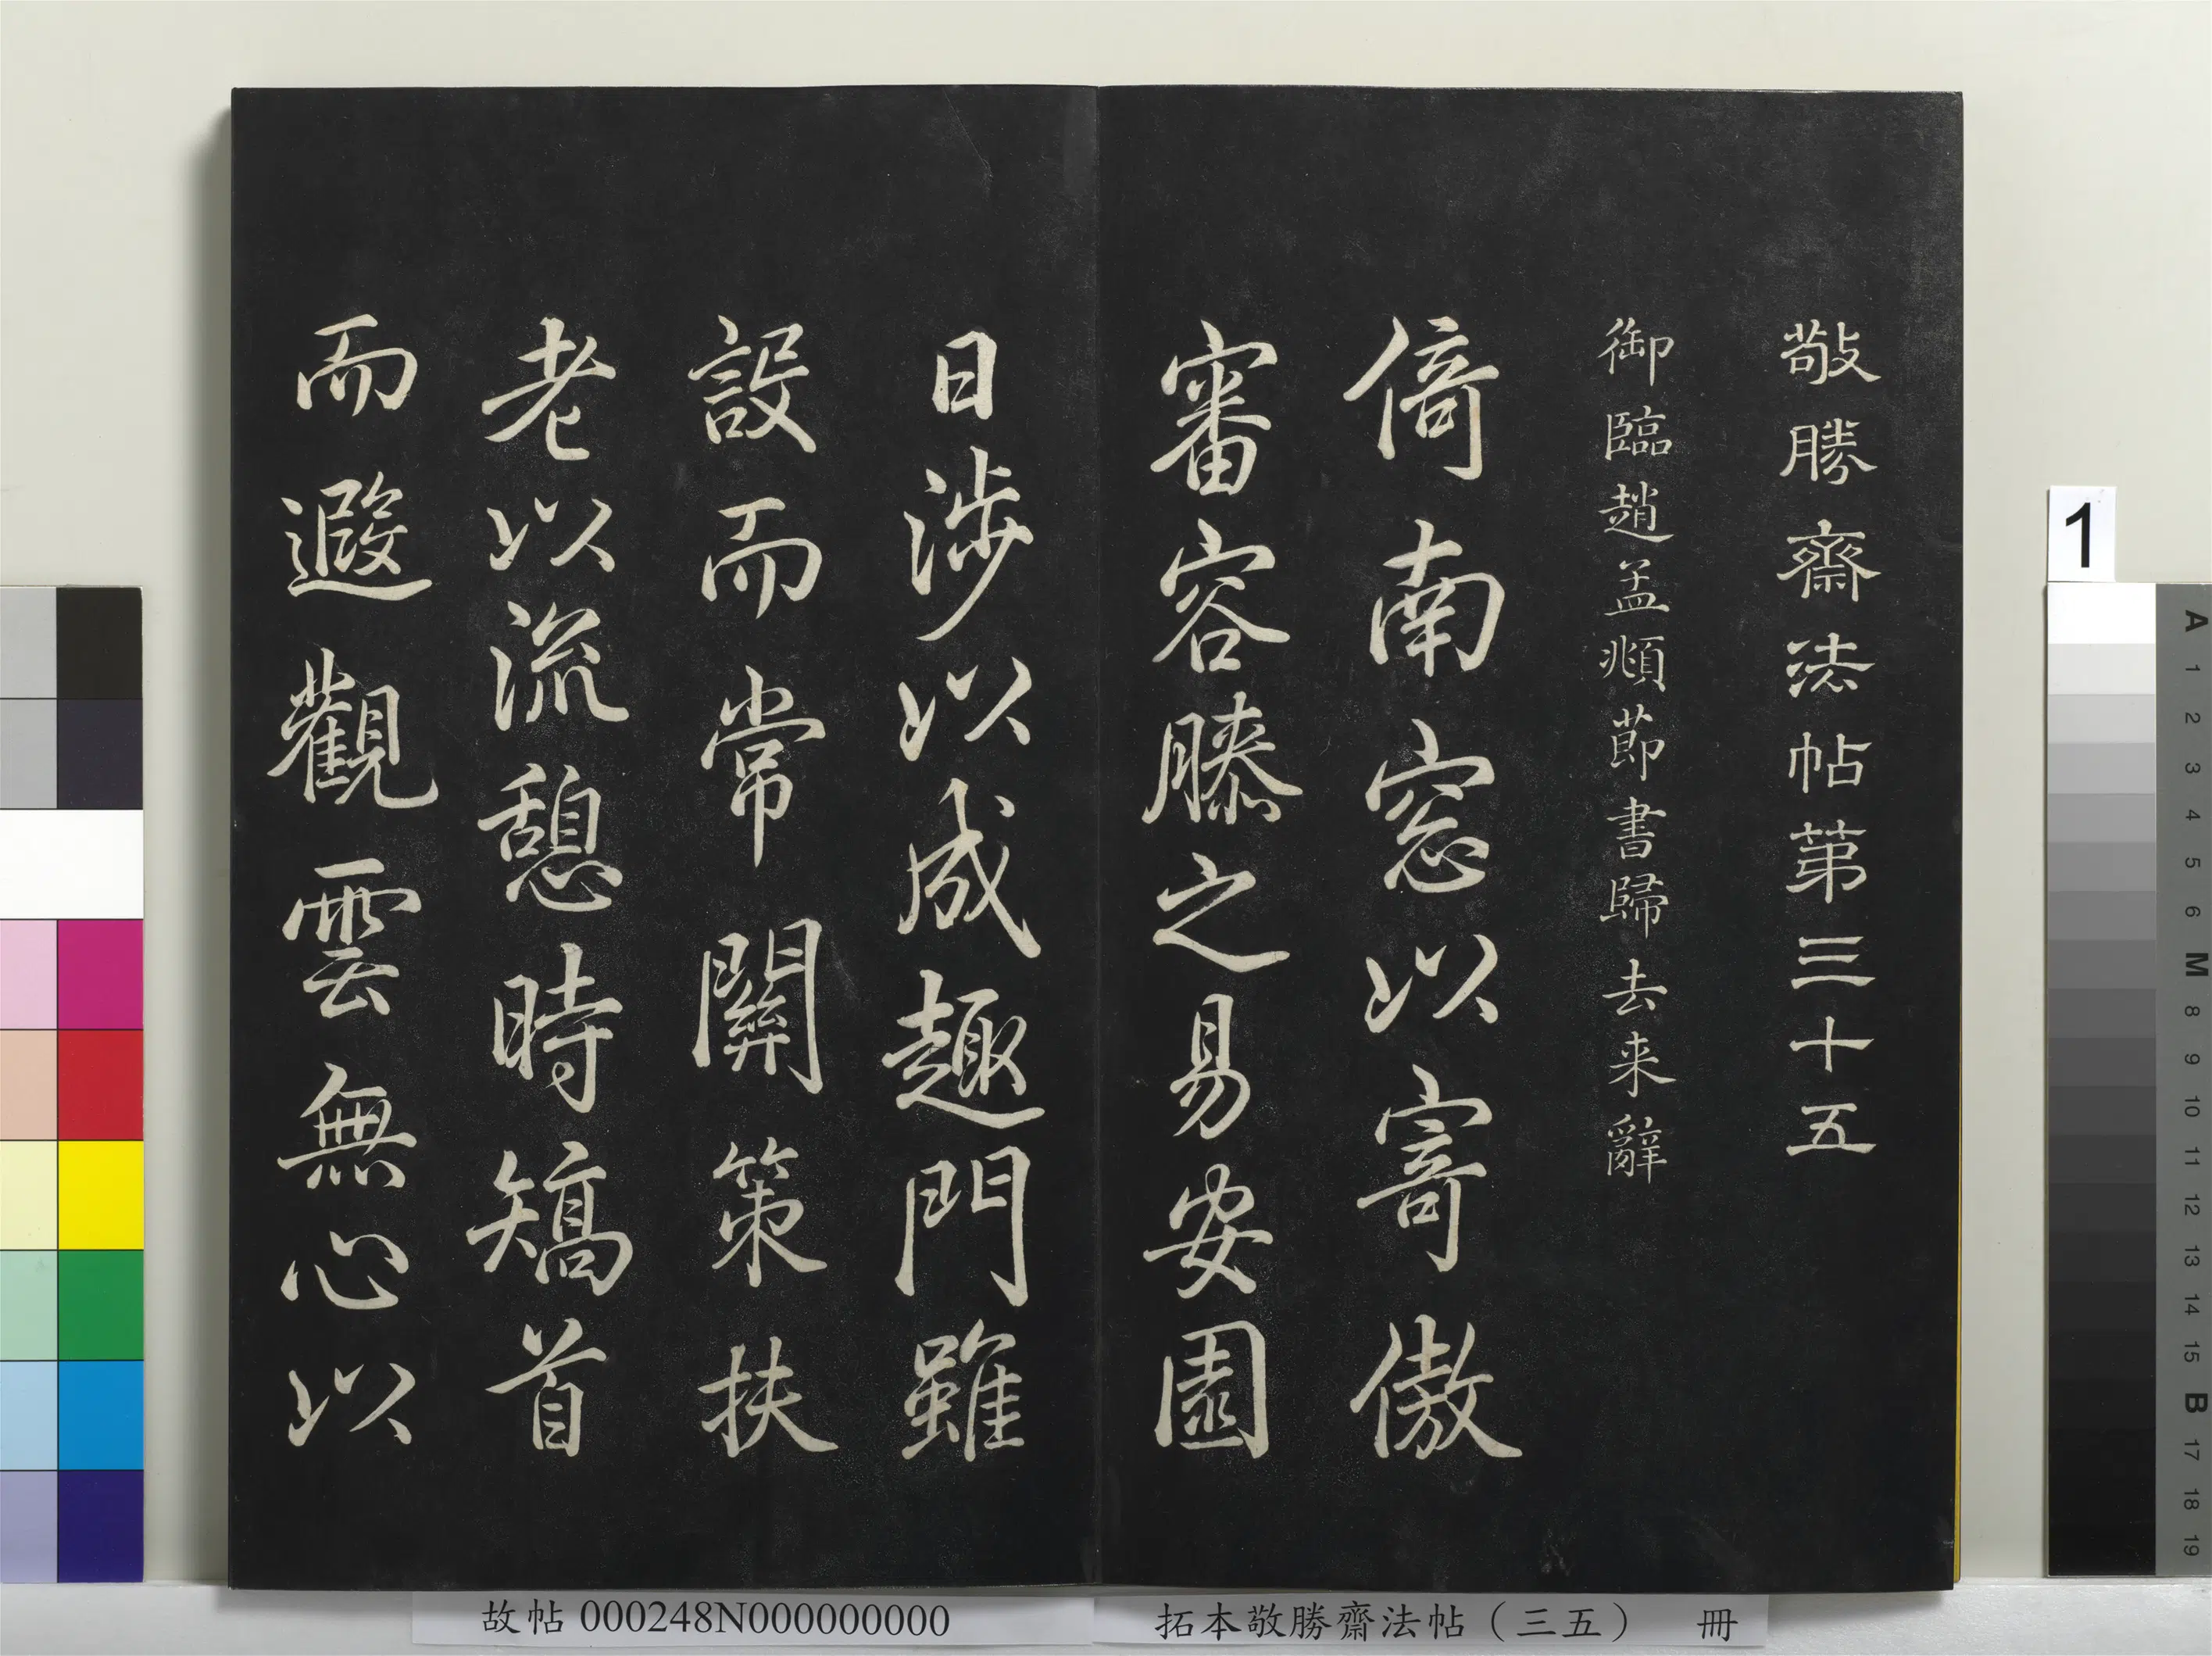 敬勝齋法帖第三十五
御臨趙孟頫節書歸去来辭
倚南窓以寄傲
審容膝之易安園
日涉以成趣門雖
設而常關策扶
老以流憩時矯首
而遐觀雲無心以
故帖 000248N000000000
拓本敬勝齋法帖（三五） 冊
1
A
1
2
3
4
5
6
M
8
9
10
11
12
13
14
15
B
17
18
19